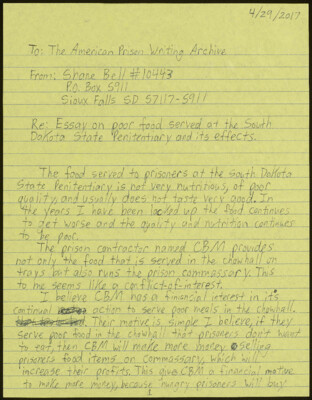 4/29/2017
To: The American Prison Writing Archive
From: Shane Bell #10443
P.O. Box 5911
Sioux Falls SD 57117-5911
Re: Essay on poor food served at the South
Dakota State Penitentiary and its effects.
The food served to prisoners at the South Dakota
State Penitentiary is not very nutritious, of poor
quality, and usually does not taste very good. In
the years I have been locked up the food continues
to get worse and the quality and nutrition continues
to be poor.
The prison contractor named CBM provides
not only the food that is served in the chowhall on
trays but also runs the prison commassary. This
to me seems like a conflict-of-interest.
I believe CBM has a financial interest in it's
continual action to serve poor meals in the chowhall.
Their motive is simple I believe, if they
serve poor food in the chowhall that prisoners don't want
to eat, then CBM will make more money selling
prisoners food items on commassary, which will
increase their profits. This give CBM a financial motive
to make more money, because hungry prisoners will buy
1